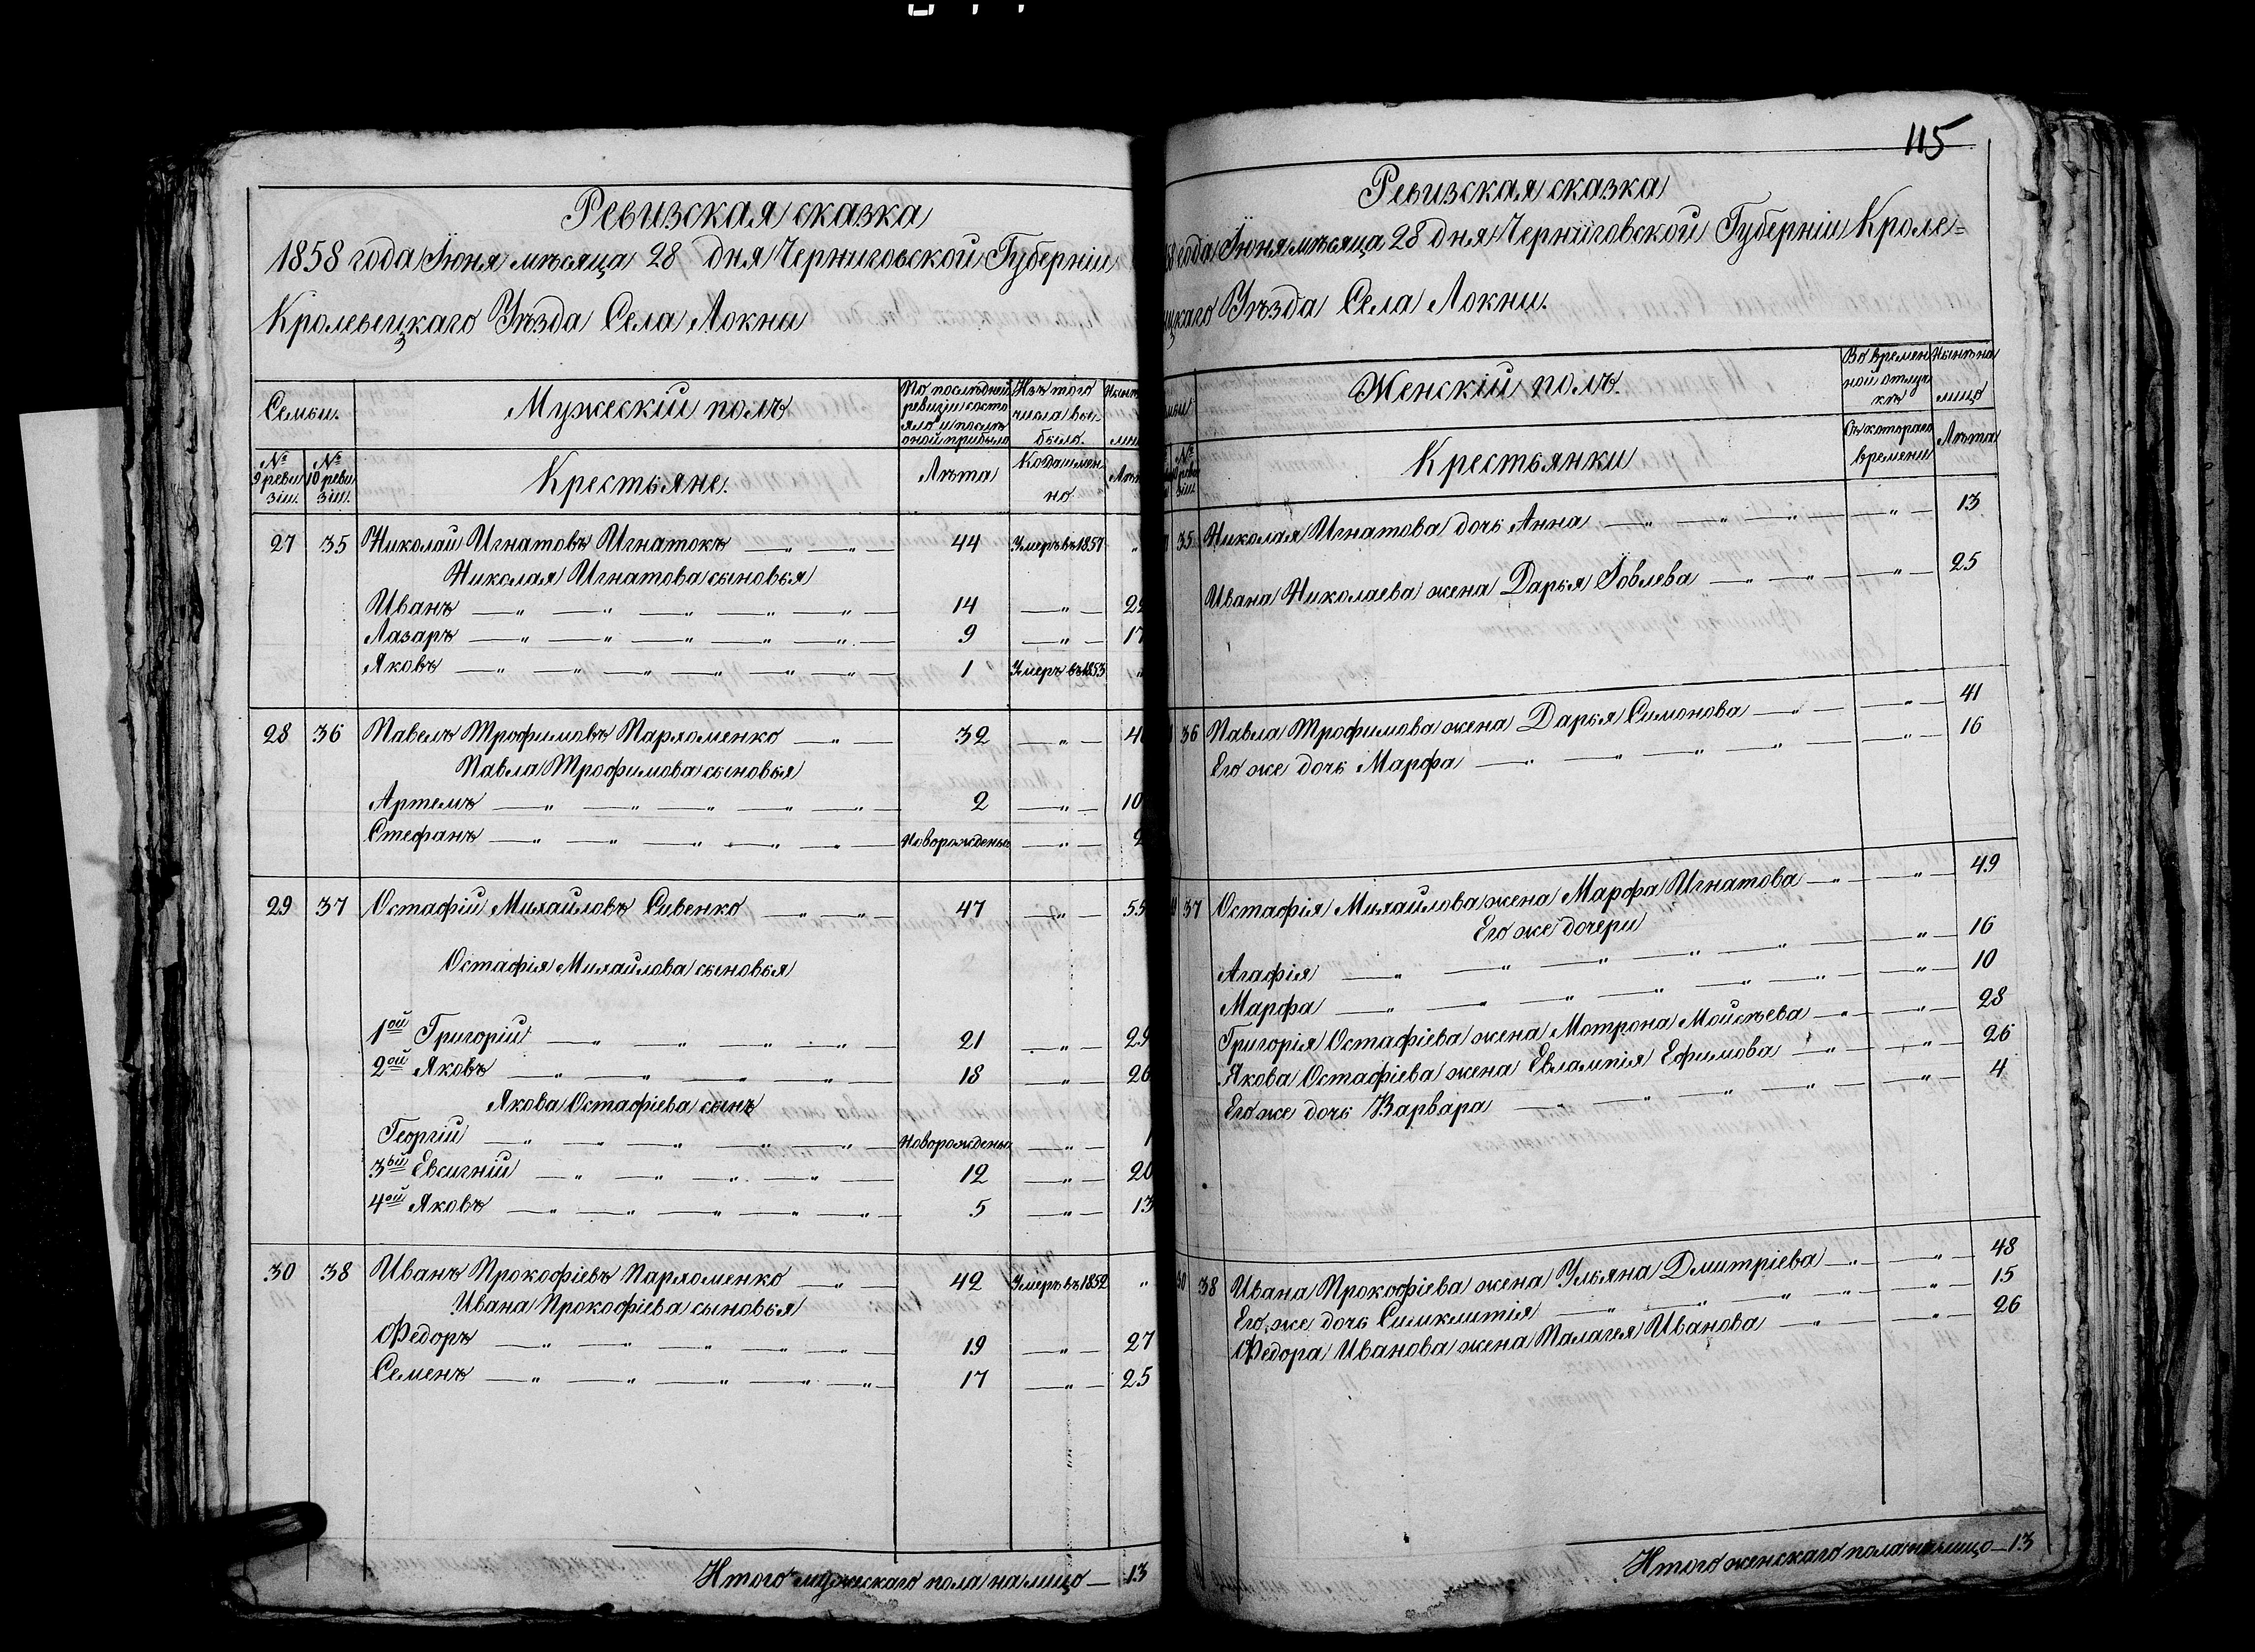 Ревизская сказка
1858 года Іюня мѣсяца 28 дня Черниговской Губерніи
Кролевецкаго Уѣзда Села Локни
Семьи.
Мужескій полъ
По послѣдней ревизіи состояло и послѣ оной прибыло
Изъ того числа выбыло.
№ 9 ревизіи.
№ 10 ревизіи.
Крестьяне.
Лѣта
Когда именно
27 35 Николай Игнатовъ Игнатокъ — „ — „ — 44 Умеръ въ 1857 „
Николая Игнатова сыновья
Иванъ — „ — „ — „ — „ — „ — 14 — „ — 22
Лазаръ — „ — „ — „ — „ — „ — 9 — „ — 17
Яковъ — „ — „ — „ — „ — „ — 1 Умеръ въ 1853 „
28 36 Павелъ Трофимовъ Пархоменко — „ — 32 — „ — 40
Павла Трофимова сыновья
Артемъ — „ — „ — „ — „ — „ — 2 — „ — 10
Стефанъ — „ — „ — „ — „ — „ — Новорожденъ — „ — 2
29 37 Остафій Михайловъ Сивенко — „ — „ — 47 — „ — 55
Остафія Михайлова сыновья
1ой Григорій — „ — „ — „ — „ — 21 — „ — 29
2ой Яковъ — „ — „ — „ — „ — 18 — „ — 26
Якова Остафіева сынъ
Георгій — „ — „ — „ — „ — „ — Новорожденъ — „ — 1
3ьй Евсигній — „ — „ — „ — „ — 12 — „ — 20
4ой Яковъ — „ — „ — „ — „ — „ — 5 — „ — 13
30 38 Иванъ Прокофіевъ Пархоменко — „ — 42 Умеръ въ 1852 „
Ивана Прокофіева сыновья
Федоръ — „ — „ — „ — „ — „ — 19 — „ — 27
Семенъ — „ — „ — „ — „ — „ — 17 — „ — 25
Итого мужескаго пола на лицо — 13
115
Ревизская сказка
года Іюня мѣсяца 28 дня Черниговской Губерніи Кроле=
цкаго Уѣзда Села Локни.
Женскій полъ.
Во временной отлучкѣ
Нынѣ на лицо
Крестьянки
Съ котораго времени
Лѣта
35 Николая Игнатова дочь Анна — „ — „ — „ — „ — 13
Ивана Николаева жена Дарья Іовлева — „ — „ — „ — 25
36 Павла Трофимова жена Дарья Симонова — „ — „ — 41
Его же дочь Марфа — „ — „ — „ — „ — „ — 16
37 Остафія Михайлова жена Марфа Игнатова — „ — „ — 49
Его же дочери
Агафія — „ — „ — „ — „ — „ — „ — 16
Марфа — „ — „ — „ — „ — „ — „ — 10
Григорія Остафіева жена Мотрона Мойсѣева — „ — „ — 28
Якова Остафіева жена Евлампія Ефимова — „ — „ — 26
Его же дочь Варвара — „ — „ — „ — „ — „ — 4
38 Ивана Прокофіева жена Ульяна Дмитріева — „ — „ — 48
Его же дочь Симклитія — „ — „ — „ — „ — „ — 15
Федора Иванова жена Палагея Иванова — „ — „ — 26
Итого женскаго пола на лицо — 13